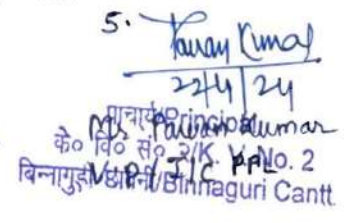 5.
Pawan Kumar
22/4/24
प्राचार्य/Principal
Mr Pawan Kumar
के० वि० सं० 2/K. V. No. 2
VP/IIC PPL
बिन्नागुड़ी छावनी/Binnaguri Cantt